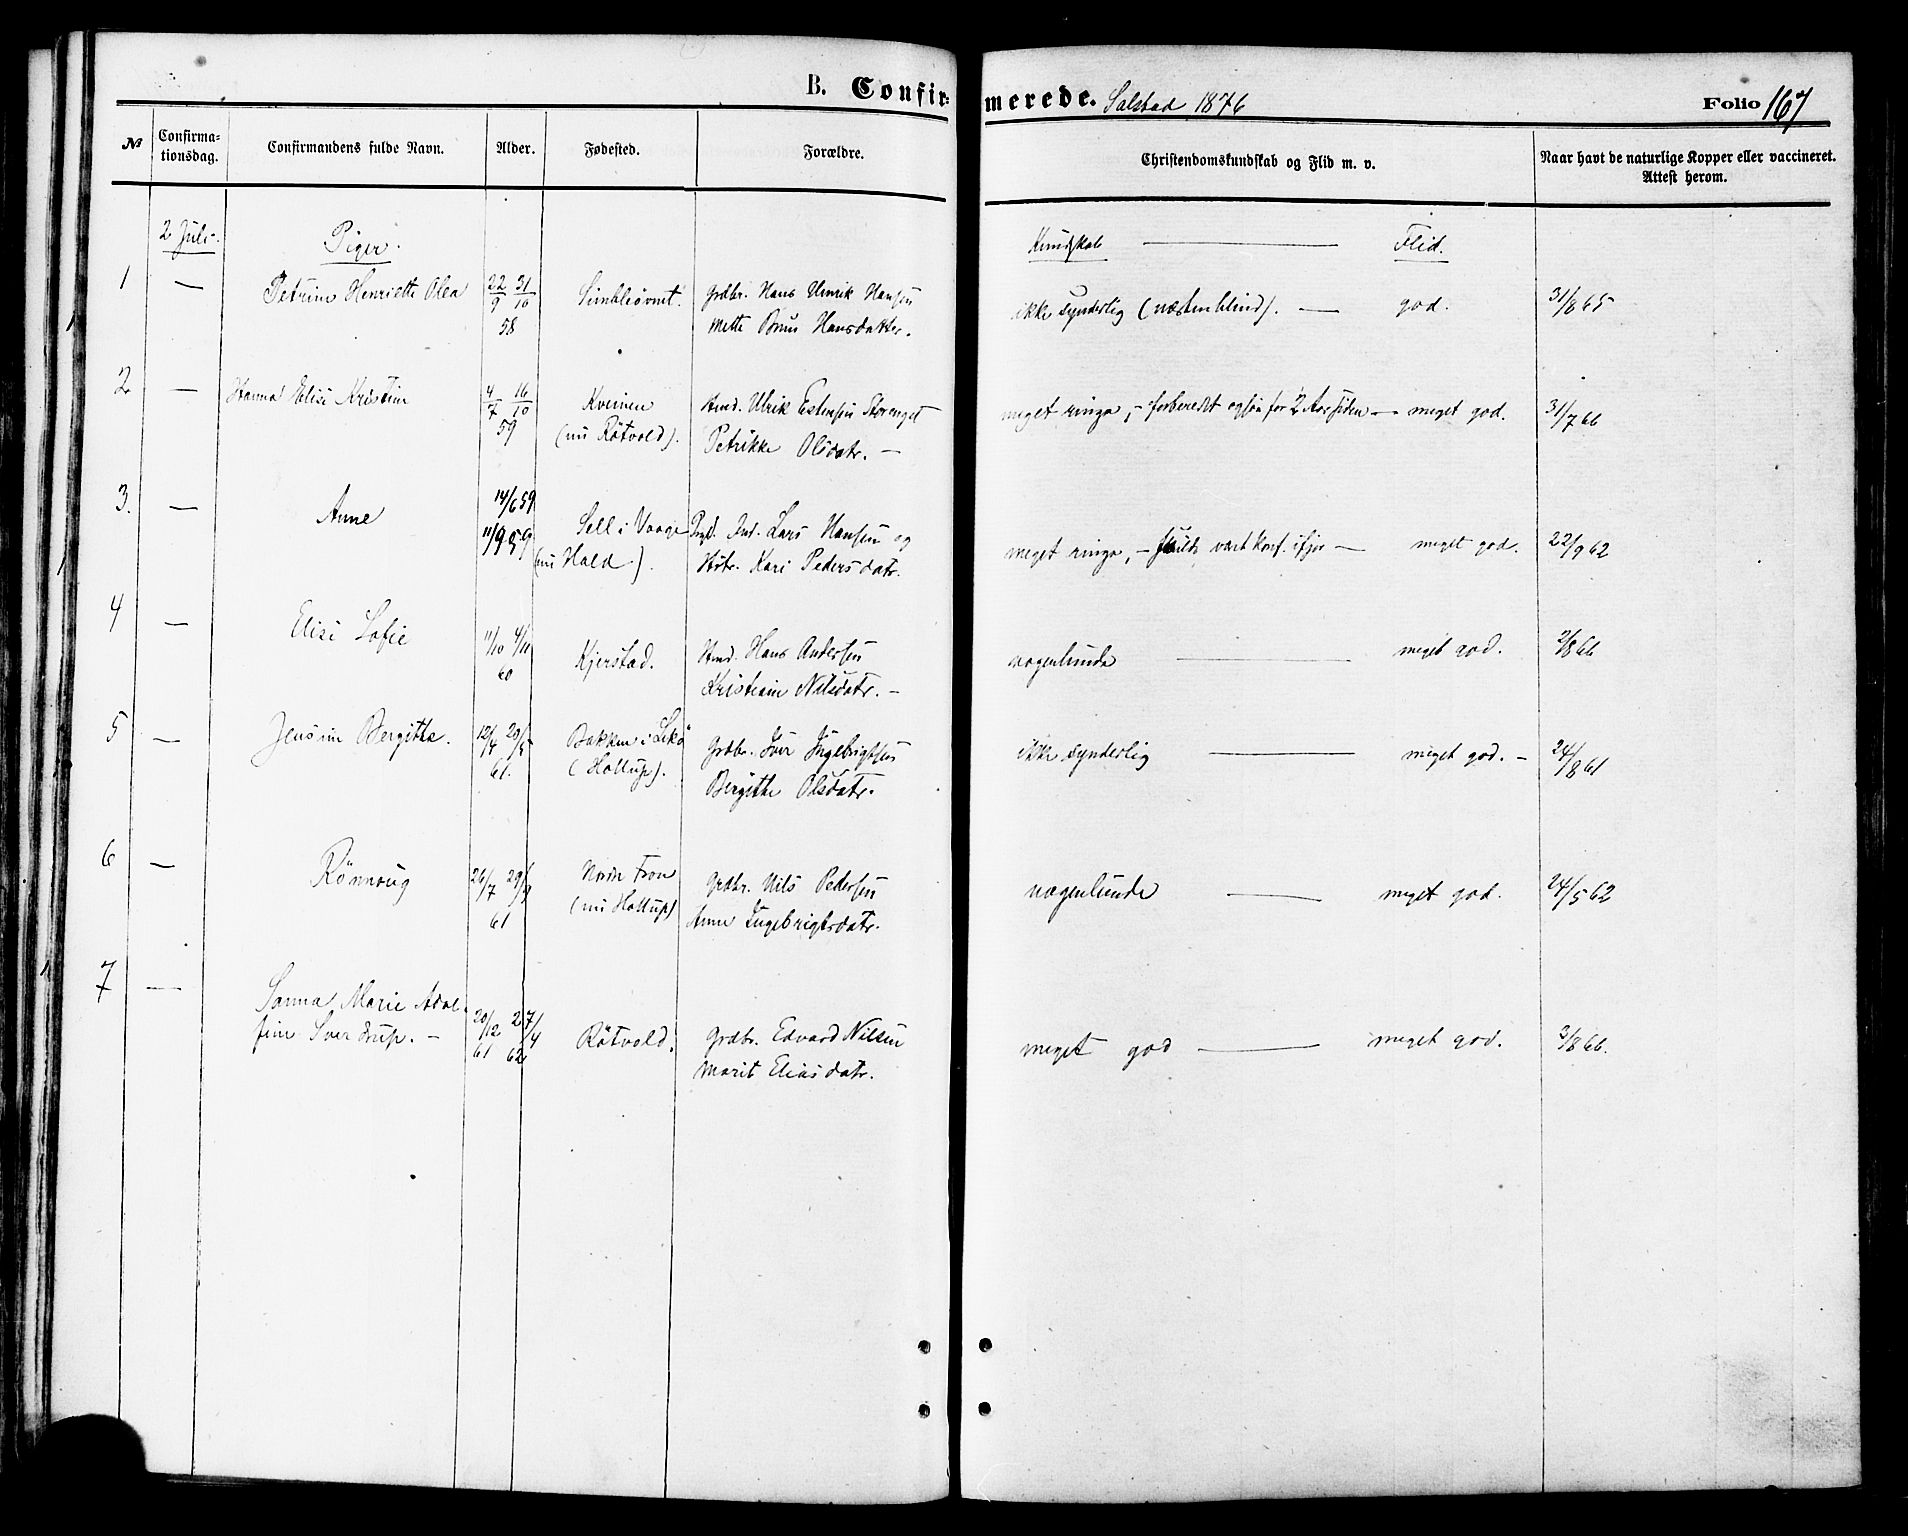 B. Confirmerede. Salstad 1876 Folio 167
№ Confirmationsdag. Confirmandens fulde Navn. Alder. Fødested. Forældre. Christendomskundskab og Flid m. v. Naar havt de naturlige Kopper eller vaccineret. Attest herom.
2 Juli. Piger. Kundskab — Flid.
1 — Petrine Henriette Olea 22/9 31/10 58 Grdbr. Hans Ulrik Hansen ikke synderlig (næsten blind). — god. 31/8 65
Mette Hansdatter.
2 — Hanna Elise Kristine 4/7 16/10 59 Kveinen Ulrik Estensen meget ringe, – forberedt ogsaa for 2 Aar siden — meget god. 31/7 66
(nu Rötvold). Petrikke Olsdatr. —
3. — Anne 14/6 59 11/9 59 Sell i Vaage Lars Hansen og meget ringe, – vært konf. ifjor — meget god. 22/9 62
(nu Hald). Hstr. Kari Pedersdatr.
4 — Elise Sofie 11/10 4/11 60 Kjerstad. Hans Andersen nogenlunde — meget god. 2/8 66
Kristiane Nilsdatr. —
5 — Jensine Bergitte. 12/4 20/5 61. Bakken i Lekö Grdbr. Iver Ingebrigtsen ikke synderlig — meget god. – 24/8 61
(Hollup). Bergitte Olsdatr.
6 — Rönnoug 26/7 29/9 61 Nordre Fron Grdbr. Nils Pedersen nogenlunde — meget god. 24/5 62
(nu Hollup) Anne Ingebrigtsdatr.
7 — Sanna Marie Adol-
fine Sverdrup. — 20/12 61 27/4 62 Rötvold. Grdbr. Edvard Nilsen meget god — meget god. 3/8 66.
Marit Eliasdatr.